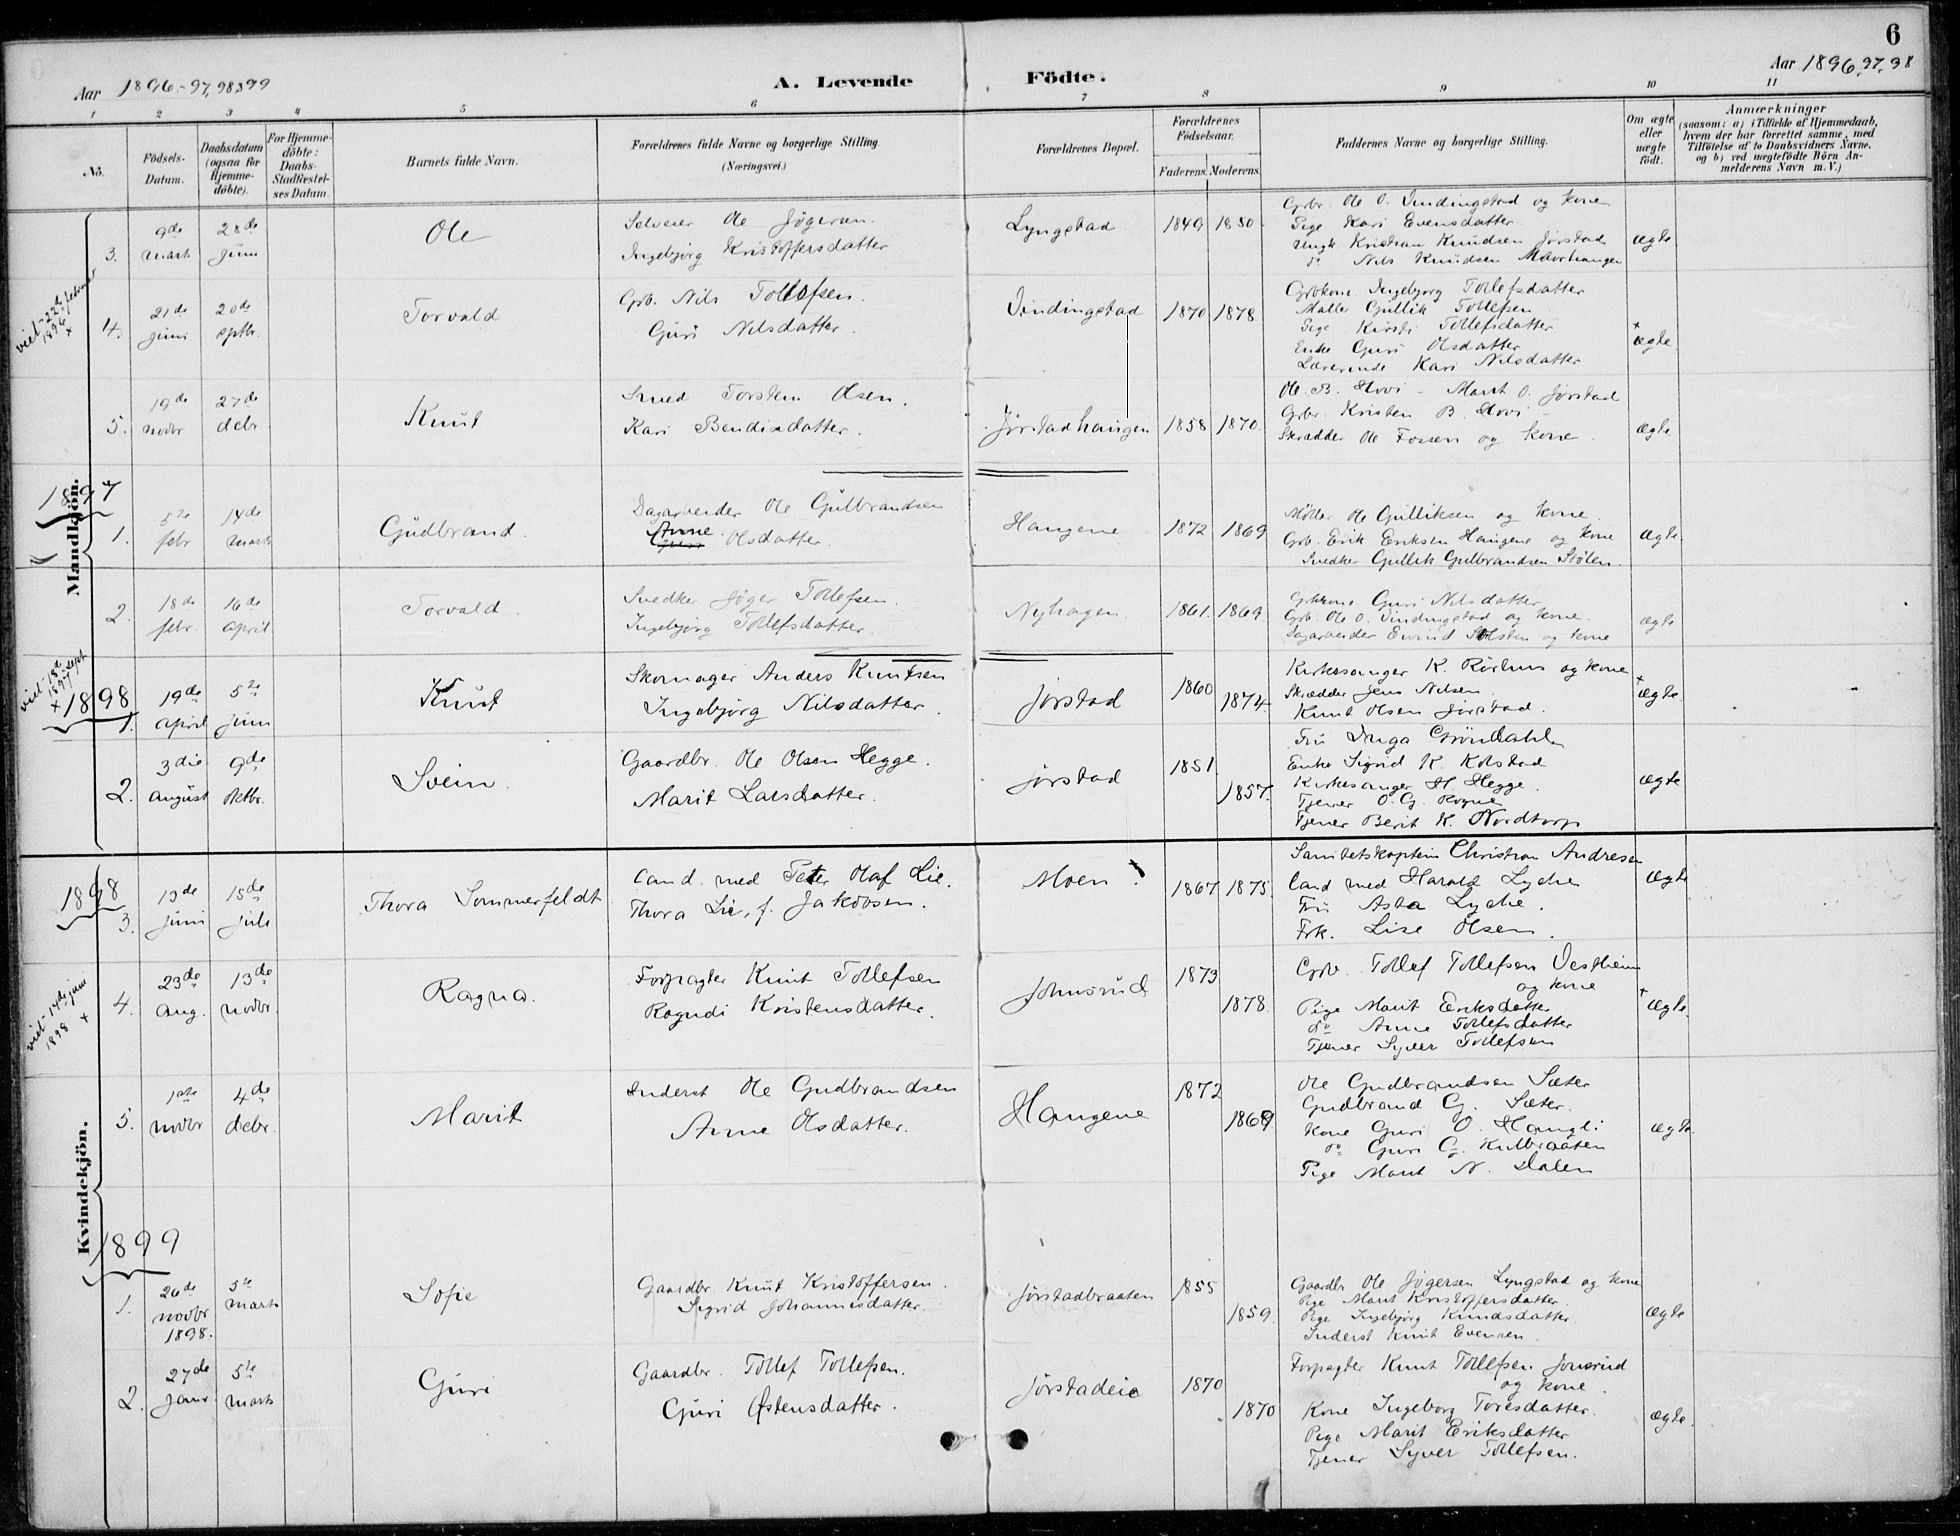 6
Aar 1896.-97,98,99
A. Levende Födte.
Aar 1896,97,98
1 2 3 4 5 6 7 8 9 10 11
No.
Födsels-Datum.
Daabsdatum (ogsaa for Hjemme-döbte).
For Hjemme-döbte: Daabs-Stadfæstel-ses Datum.
Barnets fulde Navn.
Forældrenes fulde Navne og borgerlige Stilling. (Næringsvei.)
Forældrenes Bopæl.
Forældrenes Födselsaar.
Faderens. Moderens.
Faddernes Navne og borgerlige Stilling.
Om ægte eller uægte födt.
Anmærkninger
(saasom: a) i Tilfælde af Hjemmedaab,
hvem der har forrettet samme, med
Tilföielse af to Daabsvidners Navne,
og b) ved uægtefödte Börn An-
melderens Navn m. V.)
Mandkjön.
3. 9de marts 28de juni
Ole
Selveier Ole Jøgersen.
Ingebjørg Kristoffersdatter
Lyngstad 1849 1850
Grbr. Ole O. Vindingstad og kone
Pige Kari Evensdatter
Ungk. Kristian Knudsen Jørstad
do Nils Knudsen Maurhaugen
ægte
viet 22de februar 1896 +
4. 21de juni 20de sptbr.
Torvald
Grb. Nils Tollefsen.
Guri Nilsdatter.
Vindingstad 1870 1878
Grbkone Ingebjørg Tollefsdatter
Maller Gullik Tollefsen
Pige Kirsti Tollefsdatter
Enke Guri Olsdatter
Lærerinde Kari Nilsdatter
+ ægte
5. 19de novbr 27de debr.
Knut
Smed Torstein Olsen.
Kari Bendixdatter.
Jørstadhaugen 1858 1870
Ole B. Hovi - Marit O. Jørstad
Grbr. Kristen B. Hovi -
Skrædder Ole Fossen og kone
ægte
1897
1. 5te febr 14de marts
Gudbrand.
Dagarbeider Ole Gulbrandsen
Anne Olsdatter.
Haugene 1872 1869
Møller Ole Gulliksen og kone.
Grb. Erik Eriksen Haugene og kone
Snedker Gullik Gulbrandsen Stølen.
ægte.
2. 18de febr. 16de april
Torvald.
Snedker Jøger Tollefsen.
Ingebjørg Tollefsdatter.
Nyhagen 1861. 1869
Grbkone Guri Nilsdatter
Grb. Ole O. Vindingstad og kone.
Dagarbeider Eivind Stølsten og kone
ægte
viet 18de sept 1897 +
1898
1. 19de april 5te juni
Knut
Skomager Anders Knutsen
Ingebjørg Nilsdatter.
Jørstad 1860 1874.
Kirkesanger K. Rørhus og kone
Skrædder Jens Nilsen.
Knut Olsen Jørstad.
+ ægte.
2. 3die august 9de oktbr.
Svein.
Gaardbr. Ole Olsen Hegge.
Marit Larsdatter.
Jørstad 1851. 1857.
Fru Inga Grøndahl
Enke Sigrid K. Kolstad
Kirkesanger H. Hegge.
Tjener O. G. Rogne
Tjener Berit K. Nordtorp
ægte
Kvindekjön.
1898
3. 13de juni 15de juli
Thora Sommerfeldt
Cand. med Peter Olaf Lie.
Thora Lie, f. Jakobsen.
Moen 1867 1875.
Sanitetskaptein Christian Andresen
Cand med Harald Lyche
Fru Asta Lyche.
Frk. Lise Olsen.
ægte
viet 14de juni 1898 +
4. 23de aug. 13de novbr.
Ragna.
Forpagter Knut Tollefsen
Ragndi Kristensdatter.
Johnsrud 1873 1878.
Grb. Tollef Tollefsen Vestheim
og kone
Pige Marit Eriksdatter
do Anne Tollefsdatter
Tjener Syver Tollefsen
+ ægte.
5. 1ste novbr 4de debr.
Marit
Inderst Ole Gudbrandsen
Anne Olsdatter.
Haugene 1872 1869
Ole Gudbrandsen Sæter
Gudbrand G. Sæter.
Kone Guri O. Haugli
do Guri G. Kulbraaten
Pige Marit N. Dalen
ægte.
1899
1. 26de novbr 1898. 5te marts
Sofie
Gaardbr. Knut Kristoffersen.
Sigrid Johannesdatter.
Jørstadbraaten 1855 1859.
Gaardbr Ole Jøgersen Lyngstad og kone
Pige Marit Kristoffersdatter
Pige Ingebjørg Knudsdatter
Inderst Knut Evensen.
ægte
2. 27de janr. 5te marts
Guri
Gaardbr. Tollef Tollefsen.
Guri Østensdatter.
Jørstadeie 1870 1870
Forpagter Knut Tollefsen Jonsrud
og kone.
Kone Ingeborg Toresdatter.
Pige Marit Eriksdatter
Tjener Syver Tollefsen.
ægte.